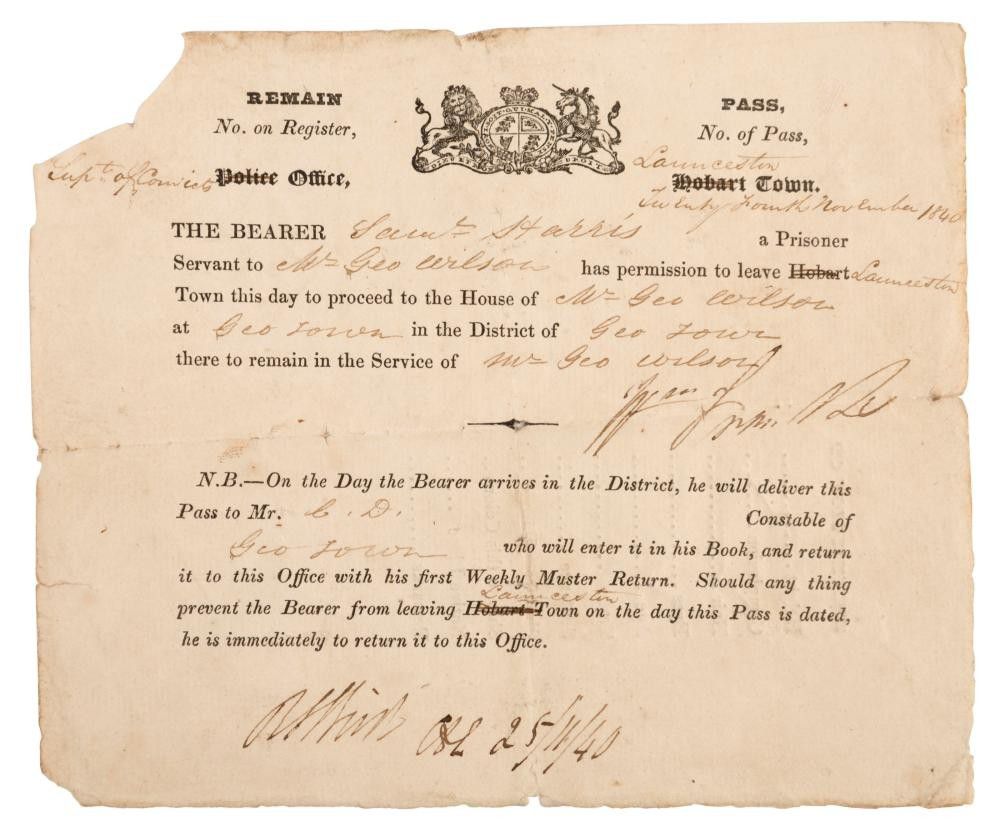 REMAIN
No. on Register,
PASS,
No. of Pass,
Supt. of Convicts Police Office,
Launceston
Hobart Town.
Twenty Fourth November 1840
THE BEARER Saml Harris a Prisoner
Servant to Mr Geo Wilson has permission to leave Hobart Launceston
Town this day to proceed to the House of Mr Geo Wilson
at Geo Town in the District of Geo Town
there to remain in the Service of Mr Geo Wilson
N.B.—On the Day the Bearer arrives in the District, he will deliver this
Pass to Mr. C. D. Constable of
Geo Town who will enter it in his Book, and return
it to this Office with his first Weekly Muster Return. Should any thing
Launceston
prevent the Bearer from leaving Hobart Town on the day this Pass is dated,
he is immediately to return it to this Office.
25/11/40